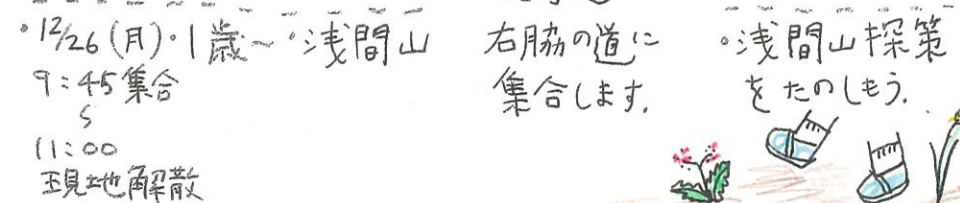 ・12/26(月)・1歳〜・浅間山
9:45集合
〜
11:00
現地解散
右脇の道に
集合します.
・浅間山探策
をたのしもう.